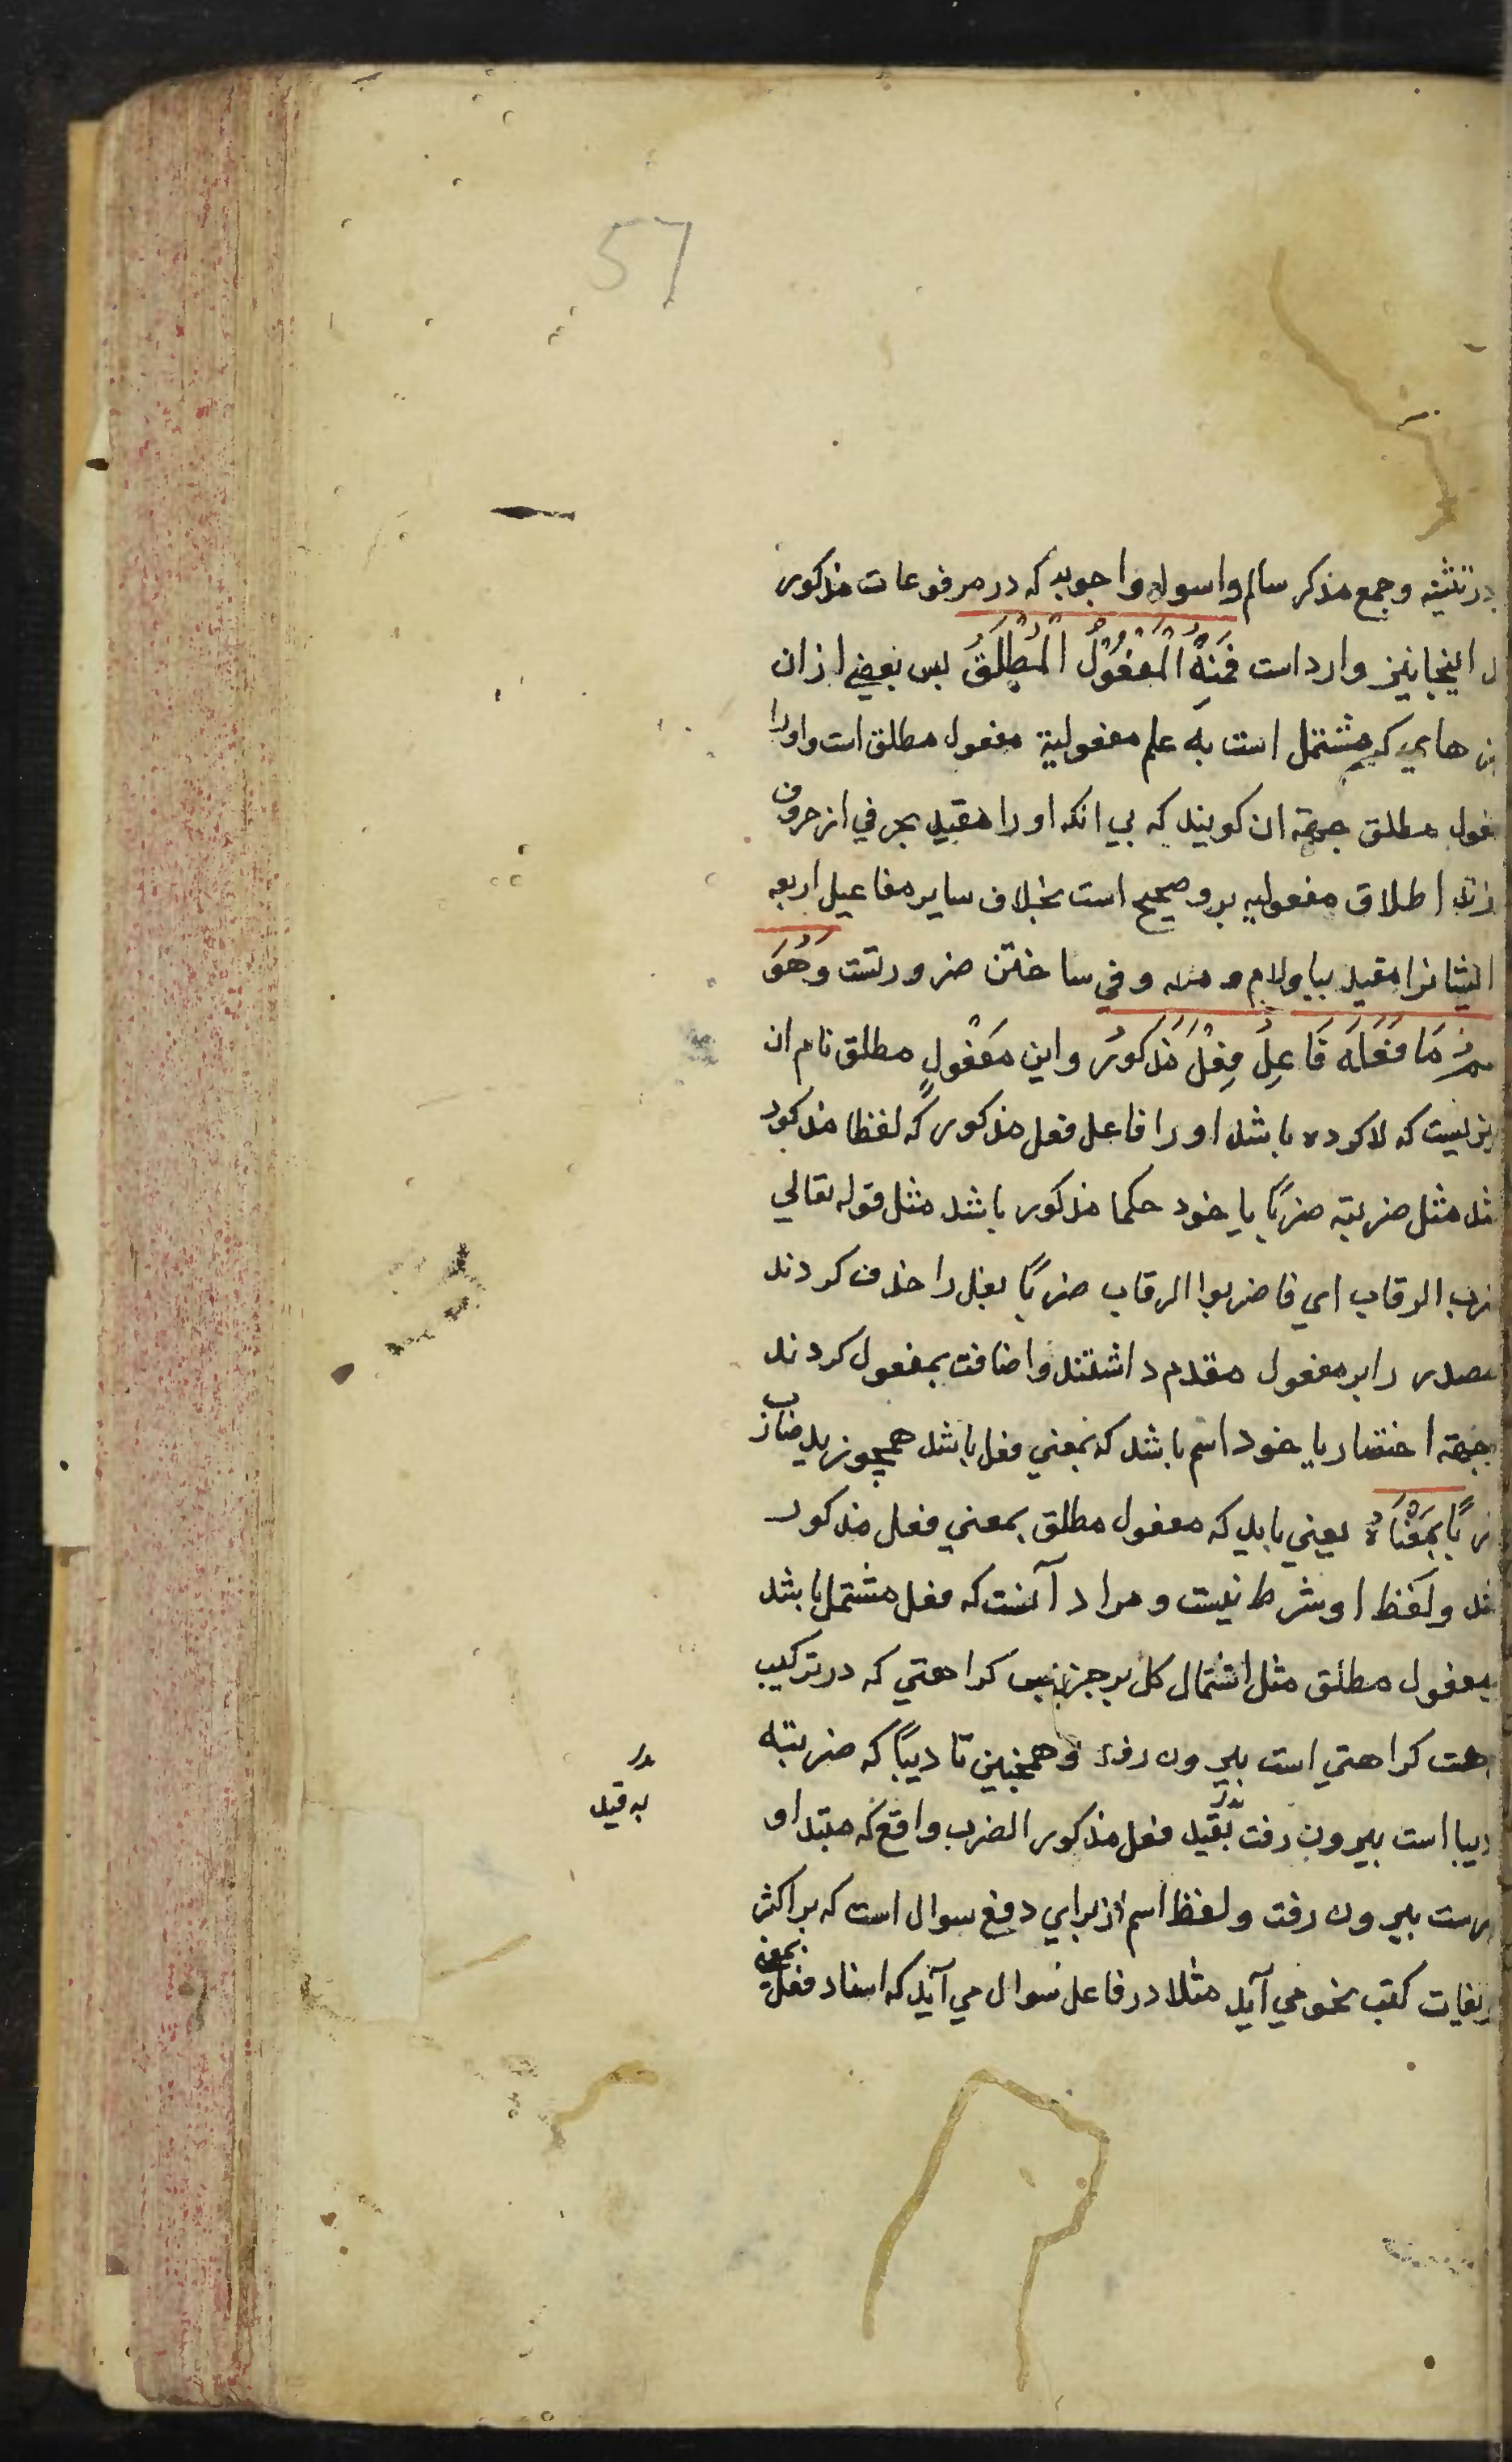 57
در تثنیه وجمع مذکر سالم واسوله واجوبه که در مرفوعات مذکور
اینجا نیز وارد است فَمِنْهُ الْمَفْعُوْلُ الْمُطْلَقُ بس بعضي ازان
هاي که مشتمل است به علم مفعولیة مفعول مطلق است واورا
مطلق جهة ان کویند که بي انکه اورا مقید بحرفي از حروف
اطلاق مفعولیه برو صحیح است بخلاف سایر مفاعیل اربعه
ایشانرا مقید ببا ولام و مع وفي ساختن ضرورتست وَهُوَ
مَا فَعَلَهُ فَاعِلُ فِعْلٍ مَذْكُورٍ واین مفعولٍ مطلق نام ان
که لا کرده باشد اورا فاعل فعل مذکور که لفظا مذکور
مثل ضربته ضربًا یا خود حکما مذکور باشد مثل قوله تعالي
الرقاب اي فاضربوا الرقاب ضربًا فعل را حذف کردند
مصدر را بر مفعول مقدم داشتند واضافت بمفعول کردند
بجهة اختصار یا خود اسم باشد که بمعني فعل باشد همچو زید ضارب
بِمَعْنَاهُ یعني باید که مفعول مطلق بمعني فعل مذکور
ولفظ او شرط نیست ومراد آنست که فعل مشتمل باشد
بمفعول مطلق مثل اشتمال کل بر جزء بس کراهتي که در ترکیب
کراهتي است بیرون رفت وهمچنین تادیبًا که ضربته
است بیرون رفت بقید فعل مذکور الضرب واقع که مبتدا و
به قید
بیرون رفت ولفظ اسم از براي دفع سوال است که بر اکثر
کتب نحو مي آید مثلا در فاعل سوال مي آید که اسناد فعل بمعني